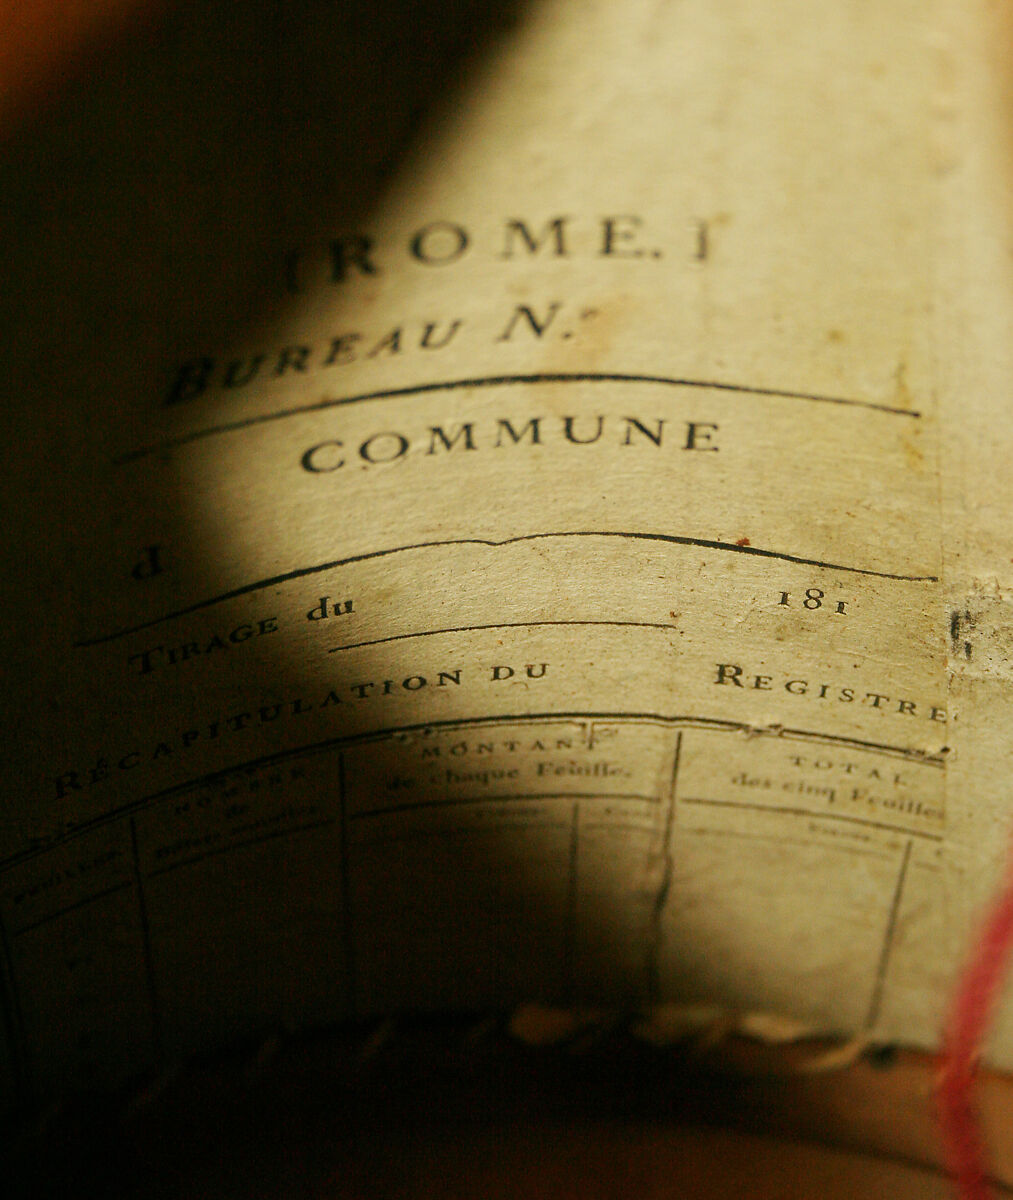 [ROME.]
BUREAU N.º
COMMUNE
d
TIRAGE du 181
RÉCAPITULATION DU REGISTRE
NOMBRE MONTANT TOTAL
de de chaque Feuille. des cinq Feuilles